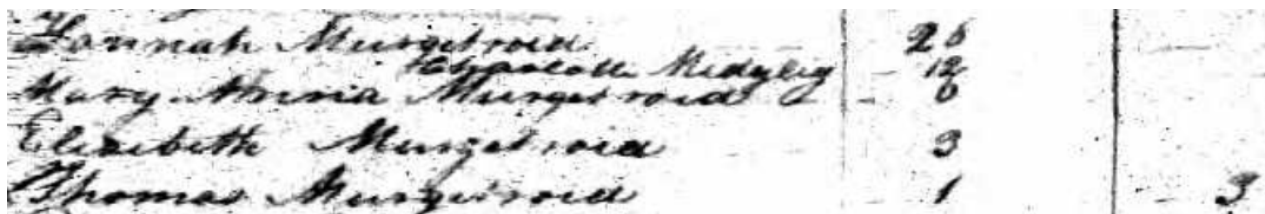 Hannah Murgetroid 26
Charlotte Midgley 12
Mary Anna Murgetroid 6
Elizabeth Murgetroid 3
Thomas Murgetroid 1 3